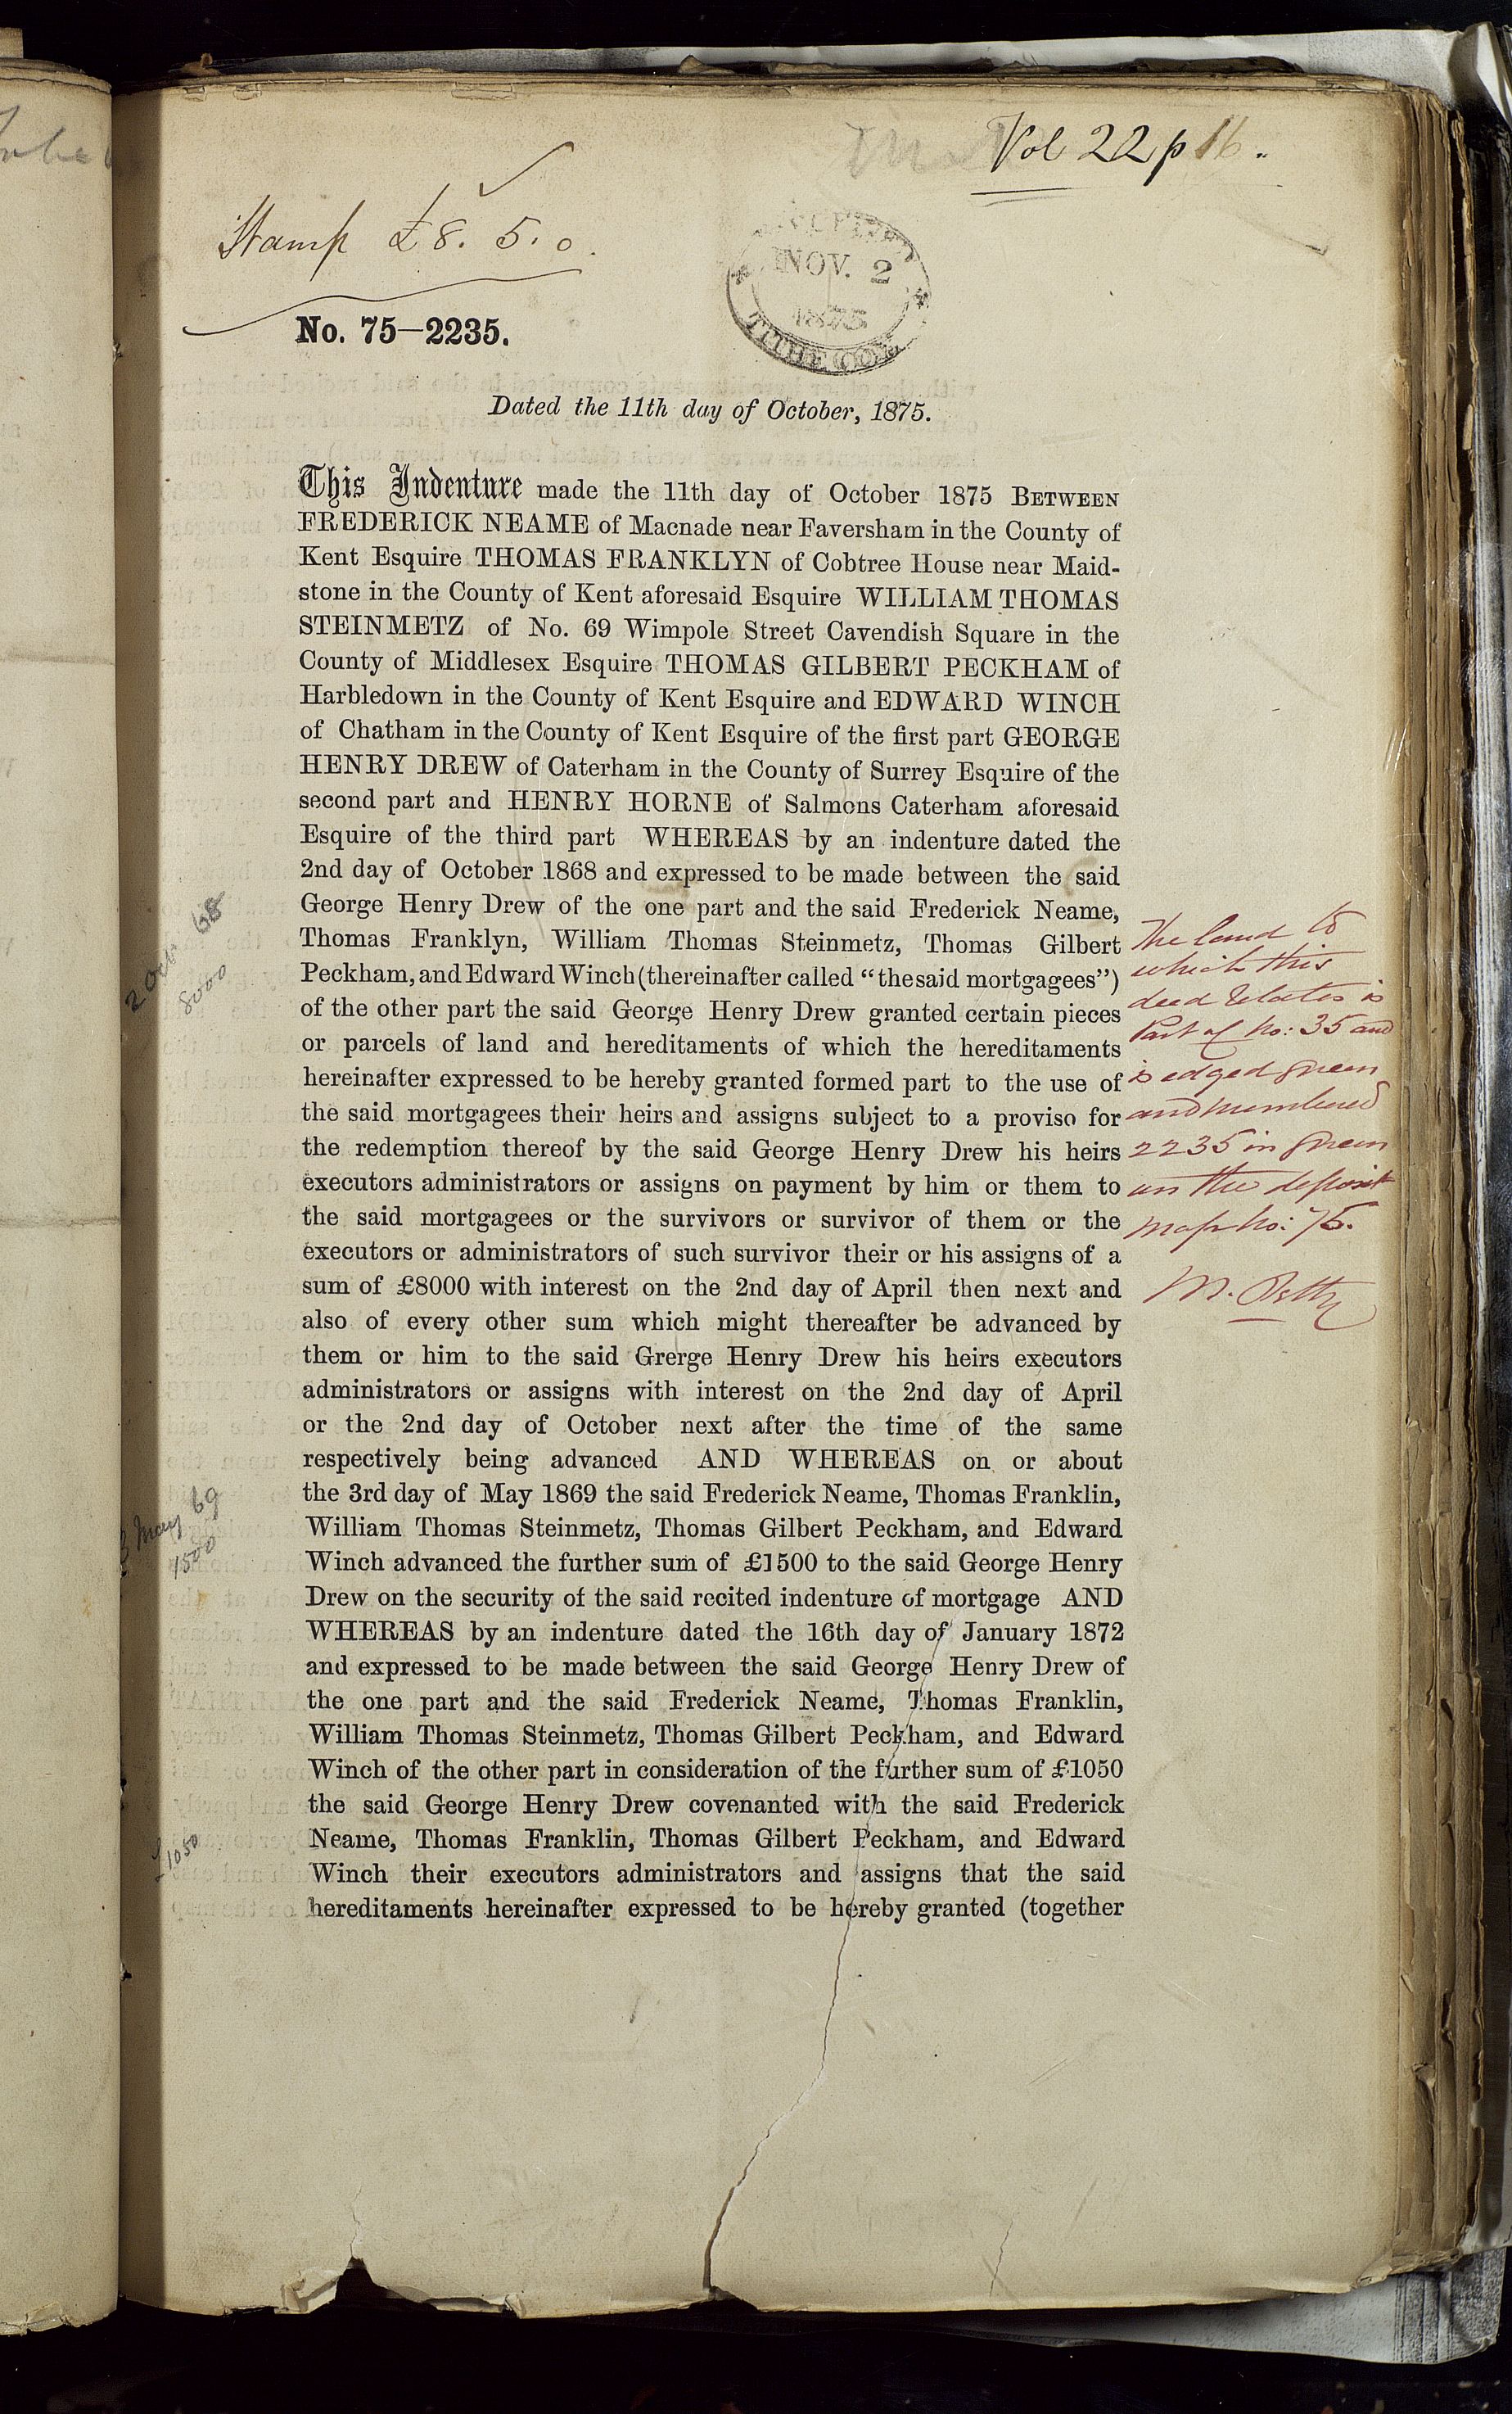 Vol 22 p 16.
Stamp £8. 5. 0.
NOV. 2
1875
TITHE COM
No. 75—2235.
Dated the 11th day of October, 1875.
This Indenture made the 11th day of October 1875 BETWEEN
FREDERICK NEAME of Macnade near Faversham in the County of
Kent Esquire THOMAS FRANKLYN of Cobtree House near Maid-
stone in the County of Kent aforesaid Esquire WILLIAM THOMAS
STEINMETZ of No. 69 Wimpole Street Cavendish Square in the
County of Middlesex Esquire THOMAS GILBERT PECKHAM of
Harbledown in the County of Kent Esquire and EDWARD WINCH
of Chatham in the County of Kent Esquire of the first part GEORGE
HENRY DREW of Caterham in the County of Surrey Esquire of the
second part and HENRY HORNE of Salmons Caterham aforesaid
Esquire of the third part WHEREAS by an indenture dated the
2nd day of October 1868 and expressed to be made between the said
George Henry Drew of the one part and the said Frederick Neame,
Thomas Franklyn, William Thomas Steinmetz, Thomas Gilbert
Peckham, and Edward Winch (thereinafter called "the said mortgagees")
of the other part the said George Henry Drew granted certain pieces
or parcels of land and hereditaments of which the hereditaments
hereinafter expressed to be hereby granted formed part to the use of
the said mortgagees their heirs and assigns subject to a proviso for
the redemption thereof by the said George Henry Drew his heirs
executors administrators or assigns on payment by him or them to
the said mortgagees or the survivors or survivor of them or the
executors or administrators of such survivor their or his assigns of a
sum of £8000 with interest on the 2nd day of April then next and
also of every other sum which might thereafter be advanced by
them or him to the said Grerge Henry Drew his heirs executors
administrators or assigns with interest on the 2nd day of April
or the 2nd day of October next after the time of the same
respectively being advanced AND WHEREAS on or about
the 3rd day of May 1869 the said Frederick Neame, Thomas Franklin,
William Thomas Steinmetz, Thomas Gilbert Peckham, and Edward
Winch advanced the further sum of £1500 to the said George Henry
Drew on the security of the said recited indenture of mortgage AND
WHEREAS by an indenture dated the 16th day of January 1872
and expressed to be made between the said George Henry Drew of
the one part and the said Frederick Neame, Thomas Franklin,
William Thomas Steinmetz, Thomas Gilbert Peckham, and Edward
Winch of the other part in consideration of the further sum of £1050
the said George Henry Drew covenanted with the said Frederick
Neame, Thomas Franklin, Thomas Gilbert Peckham, and Edward
Winch their executors administrators and assigns that the said
hereditaments hereinafter expressed to be hereby granted (together
2 Oct 68
8000
3 May 69
1500
£1050
The land to
which this
deed relates is
Part of No: 35 and
is edged green
and numbered
2235 in green
on the deposit
map No: 75.